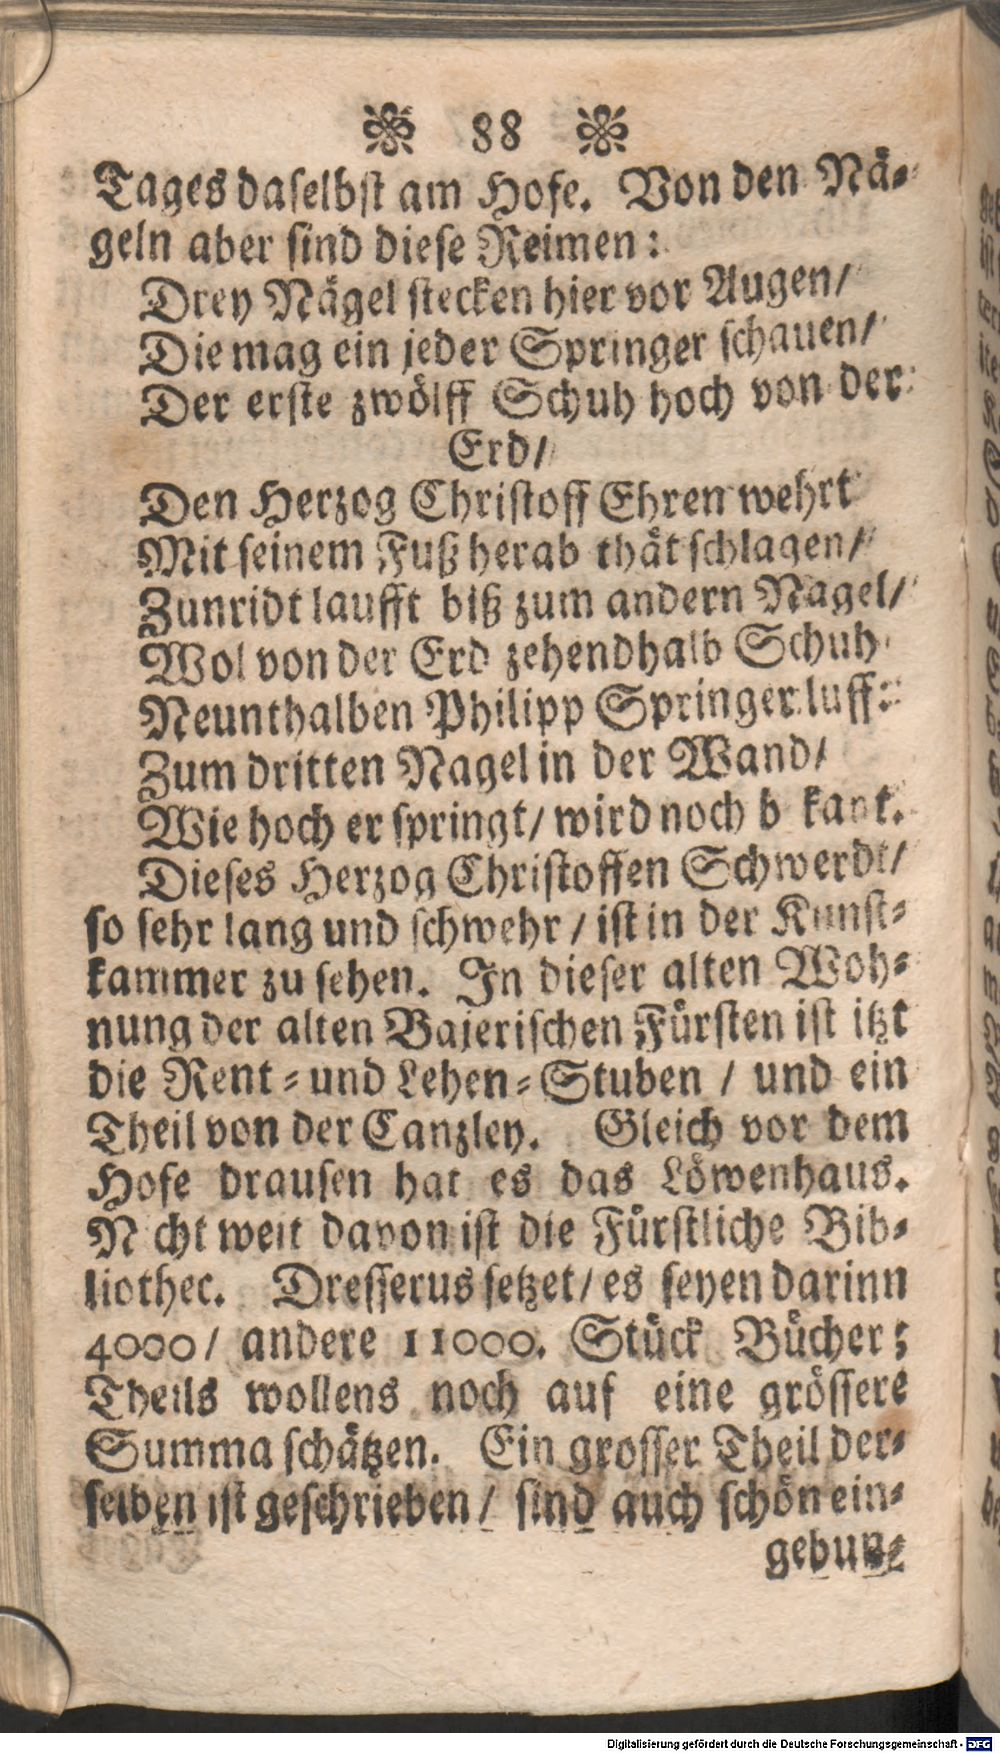 88
Tages daselbst am Hofe. Von den Nä-
geln aber sind diese Reimen:
Drey Nägel stecken hier vor Augen/
Die mag ein jeder Springer schauen/
Der erste zwölff Schuh hoch von der
Erd/
Den Herzog Christoff Ehren wehrt
Mit seinem Fuß herab thät schlagen/
Zunridt laufft biß zum andern Nagel/
Wol von der Erd zehendhalb Schuh
Neunthalben Philipp Springer luff:
Zum dritten Nagel in der Wand/
Wie hoch er springt/ wird noch b kant.
Dieses Herzog Christoffen Schwerdt/
so sehr lang und schwehr / ist in der Kunst-
kammer zu sehen. In dieser alten Woh-
nung der alten Bajerischen Fürsten ist itzt
die Rent- und Lehen-Stuben / und ein
Theil von der Canzley. Gleich vor dem
Hofe drausen hat es das Löwenhaus.
N cht weit davon ist die Fürstliche Bib-
liothec. Dresserus setzet/ es seyen darinn
4000/ andere 11000. Stück Bücher;
Theils wollens noch auf eine grössere
Summa schätzen. Ein grosser Theil der-
selben ist geschrieben/ sind auch schön ein-
gebun-
Digitalisierung gefördert durch die Deutsche Forschungsgemeinschaft - DFG